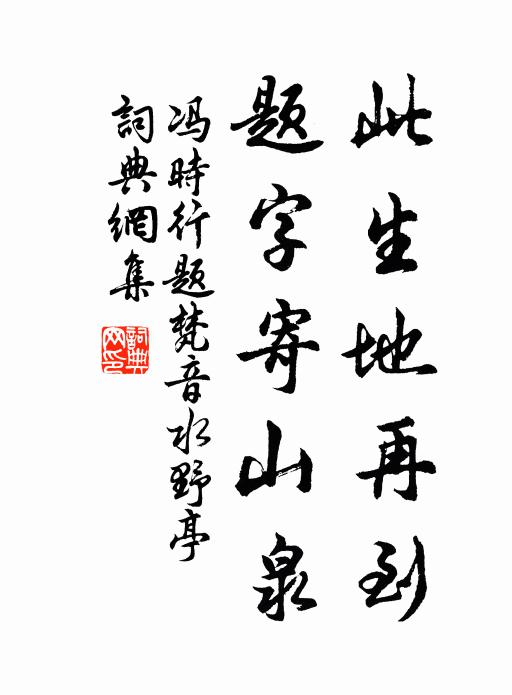 此生地再到
題字寄山泉
冯時行题梵音水野亭
詞典網集
詞典网印